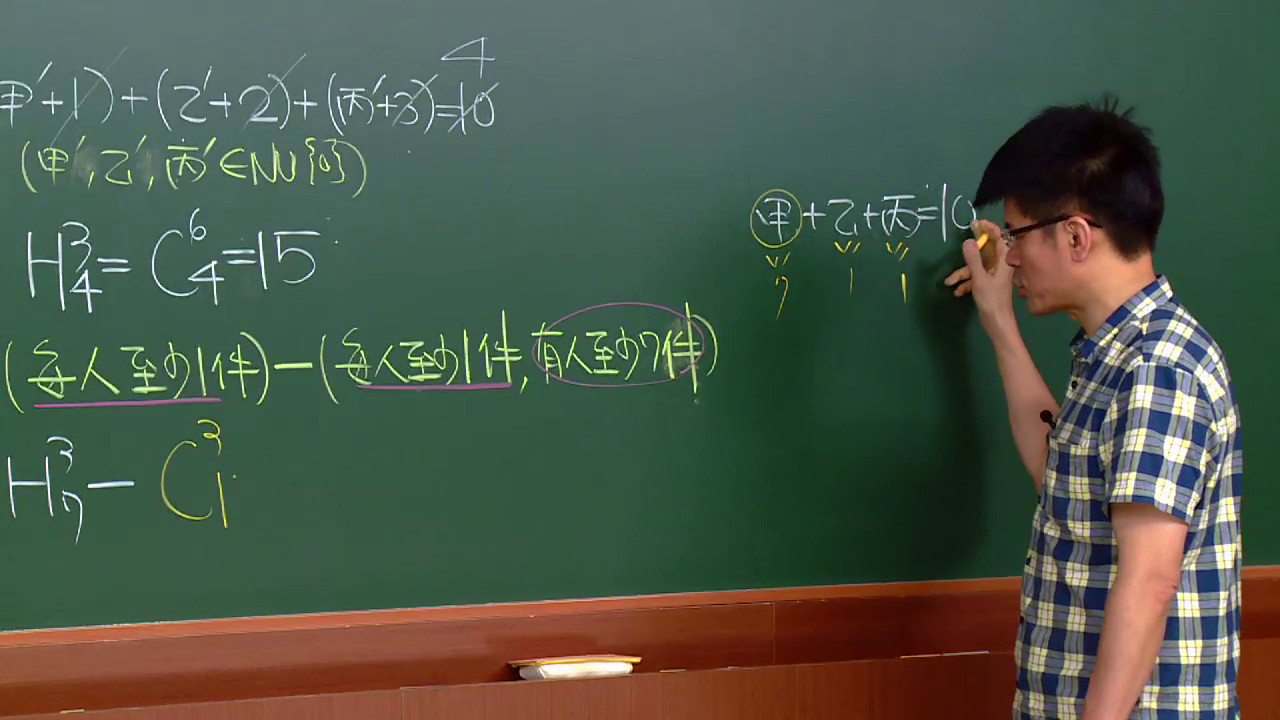 4
甲′+1)+(乙′+2)+(丙′+3)=10
(甲′,乙′,丙′∈N∪{0})
H³₄=C⁶₄=15
(每人至少1件)-(每人至少1件,有人至少7件)
H³₇-C³₁
甲+乙+丙=10
7 1 1